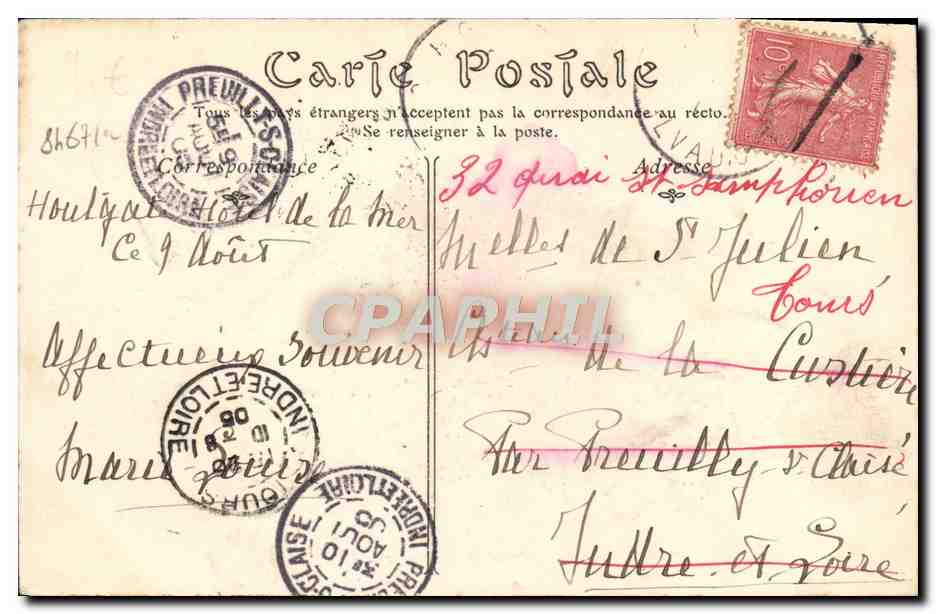 Carte Postale
Tous les pays étrangers n'acceptent pas la correspondance au recto.
Se renseigner à la poste.
Correspondance
Adresse
8h671
Houlgate Hôtel de la Mer
Ce 9 Août
Affectueux Souvenir
Marie Louise
32 quai St Symphorien
Melles de St Julien
Tours
de la Custière
Par Preuilly s Claise
Indre et Loire
CPAPHIL
PREUILLY-S-CLAISE
INDRE-ET-LOIRE
TOURS
INDRE-ET-LOIRE
05
10
PREUILLY-S-CLAISE
INDRE-ET-LOIRE
3E 10
AOUT
05
10c